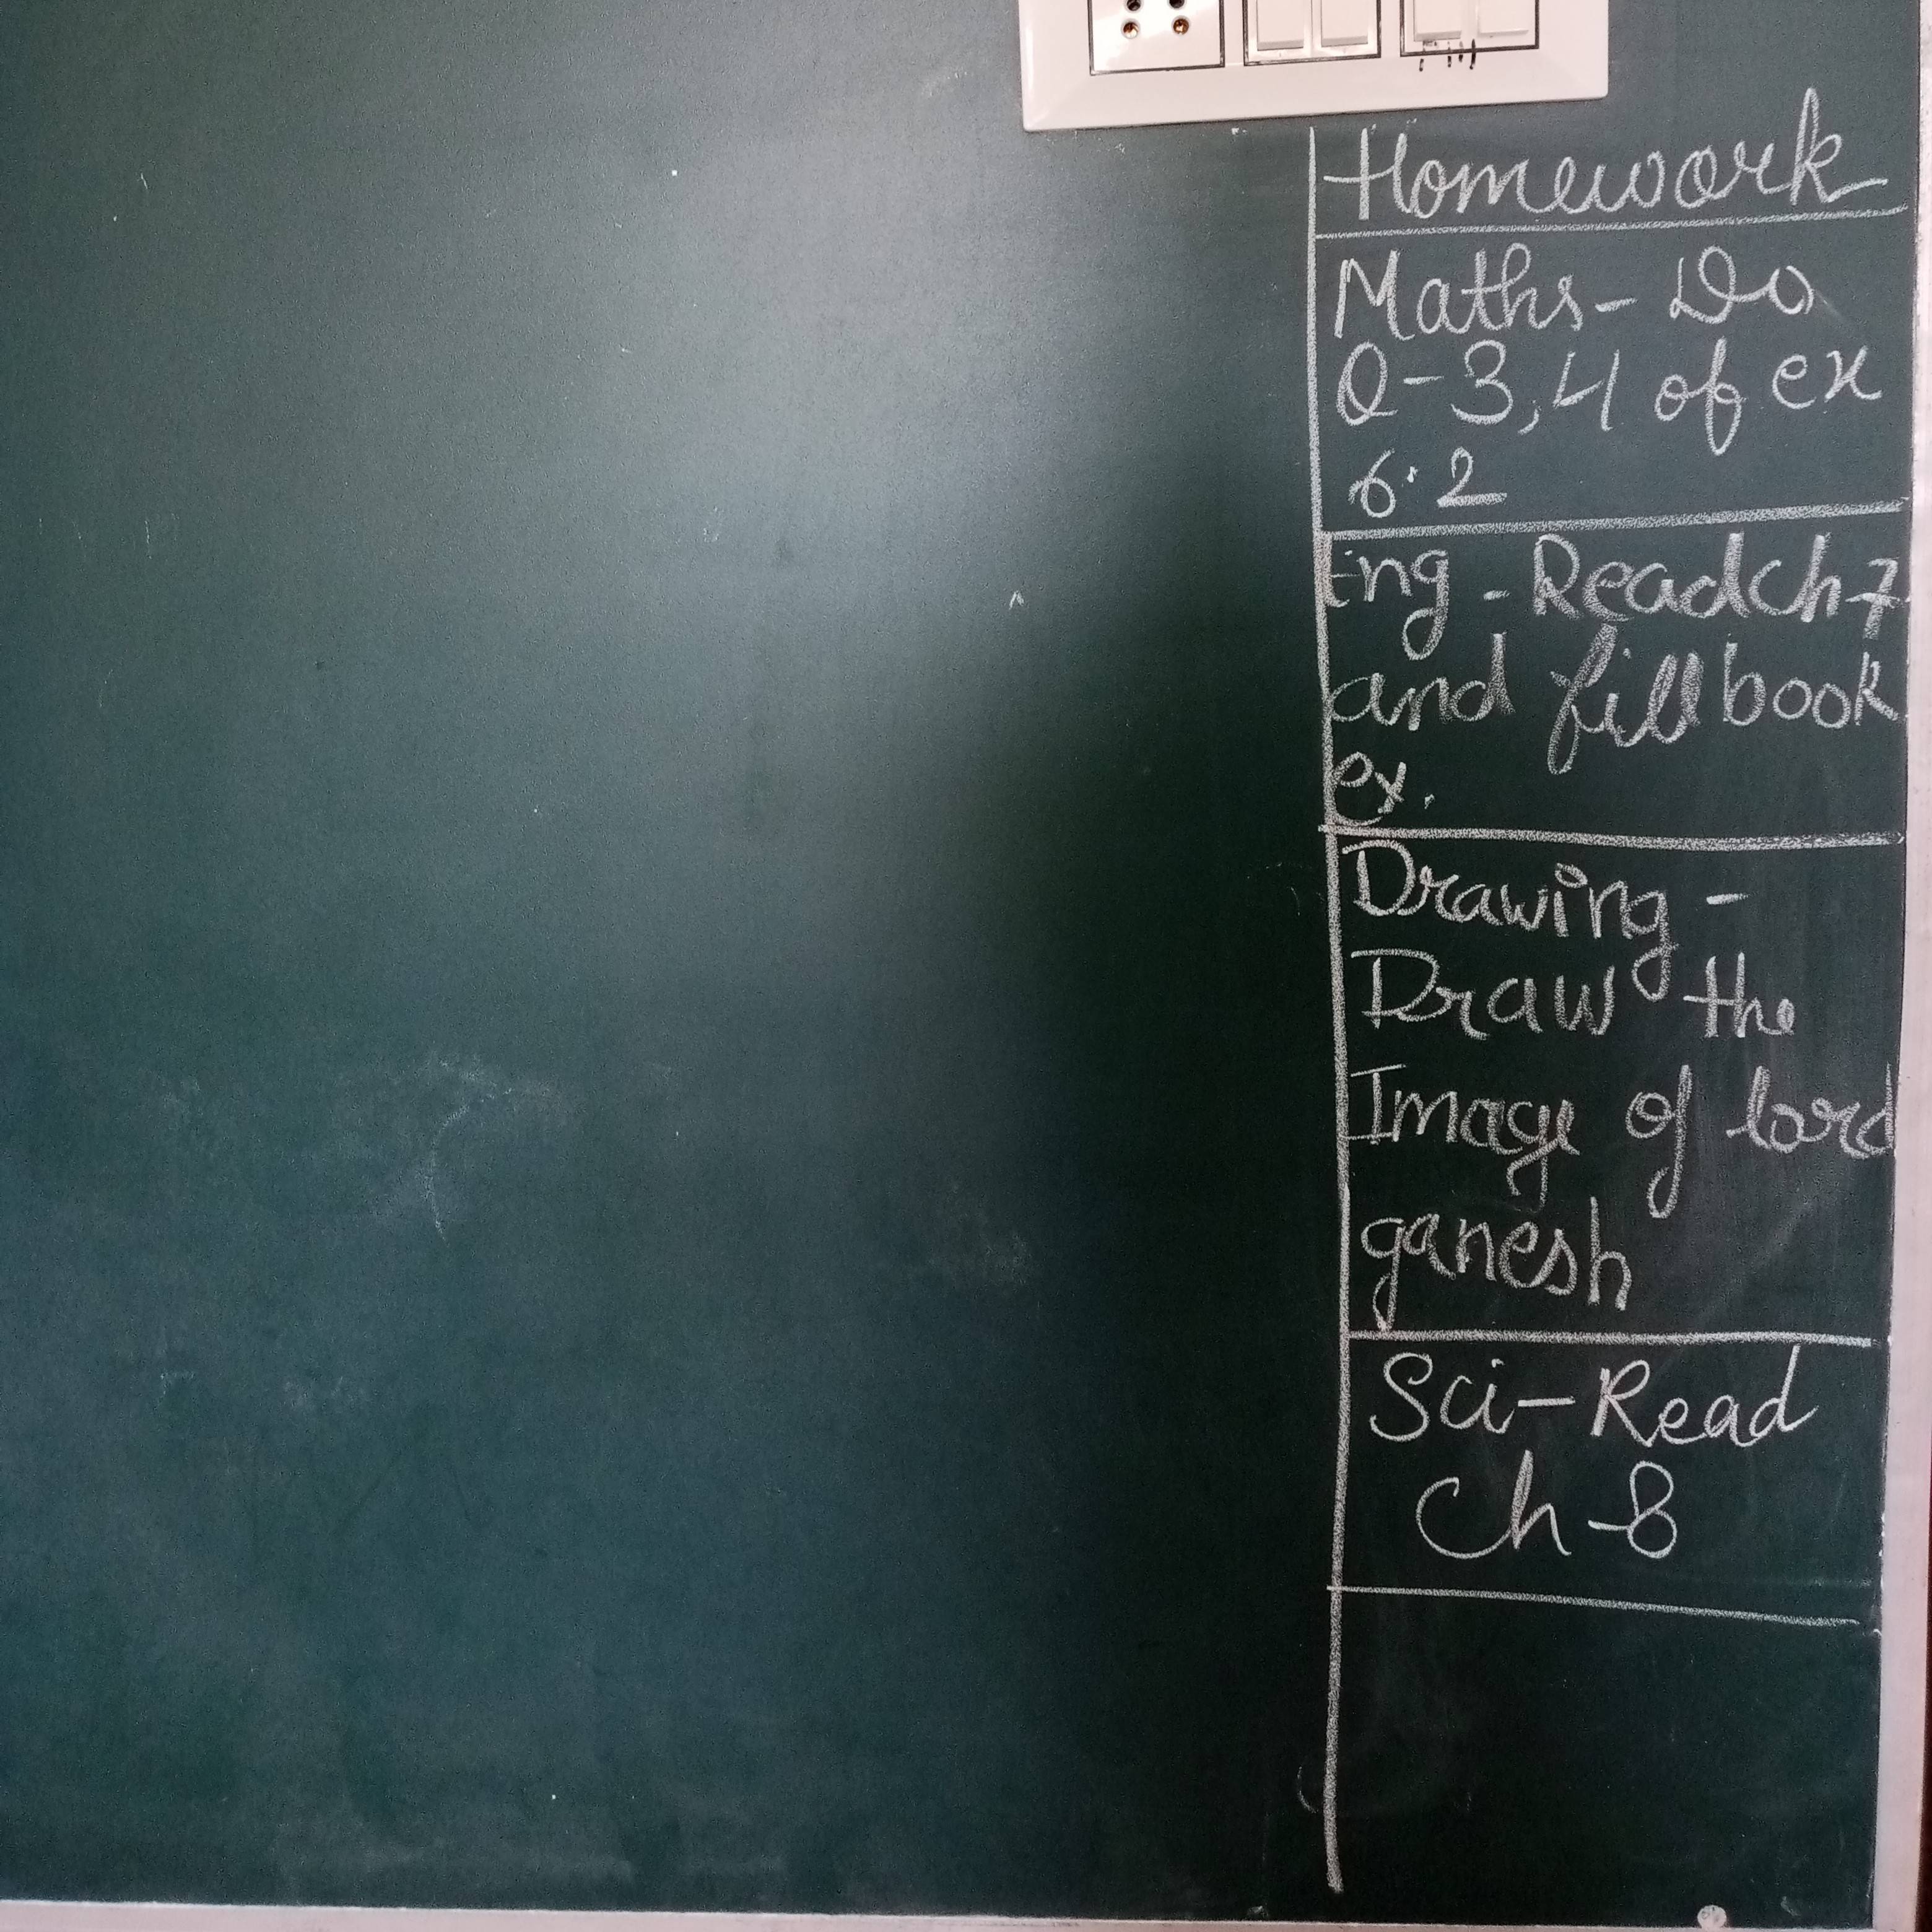 Homework
Maths- Do
Q-3,4 of ex
6.2
Eng - Read ch-7
and fill book
ex.
Drawing -
Draw the
Image of lord
ganesh
Sci-Read
Ch-8